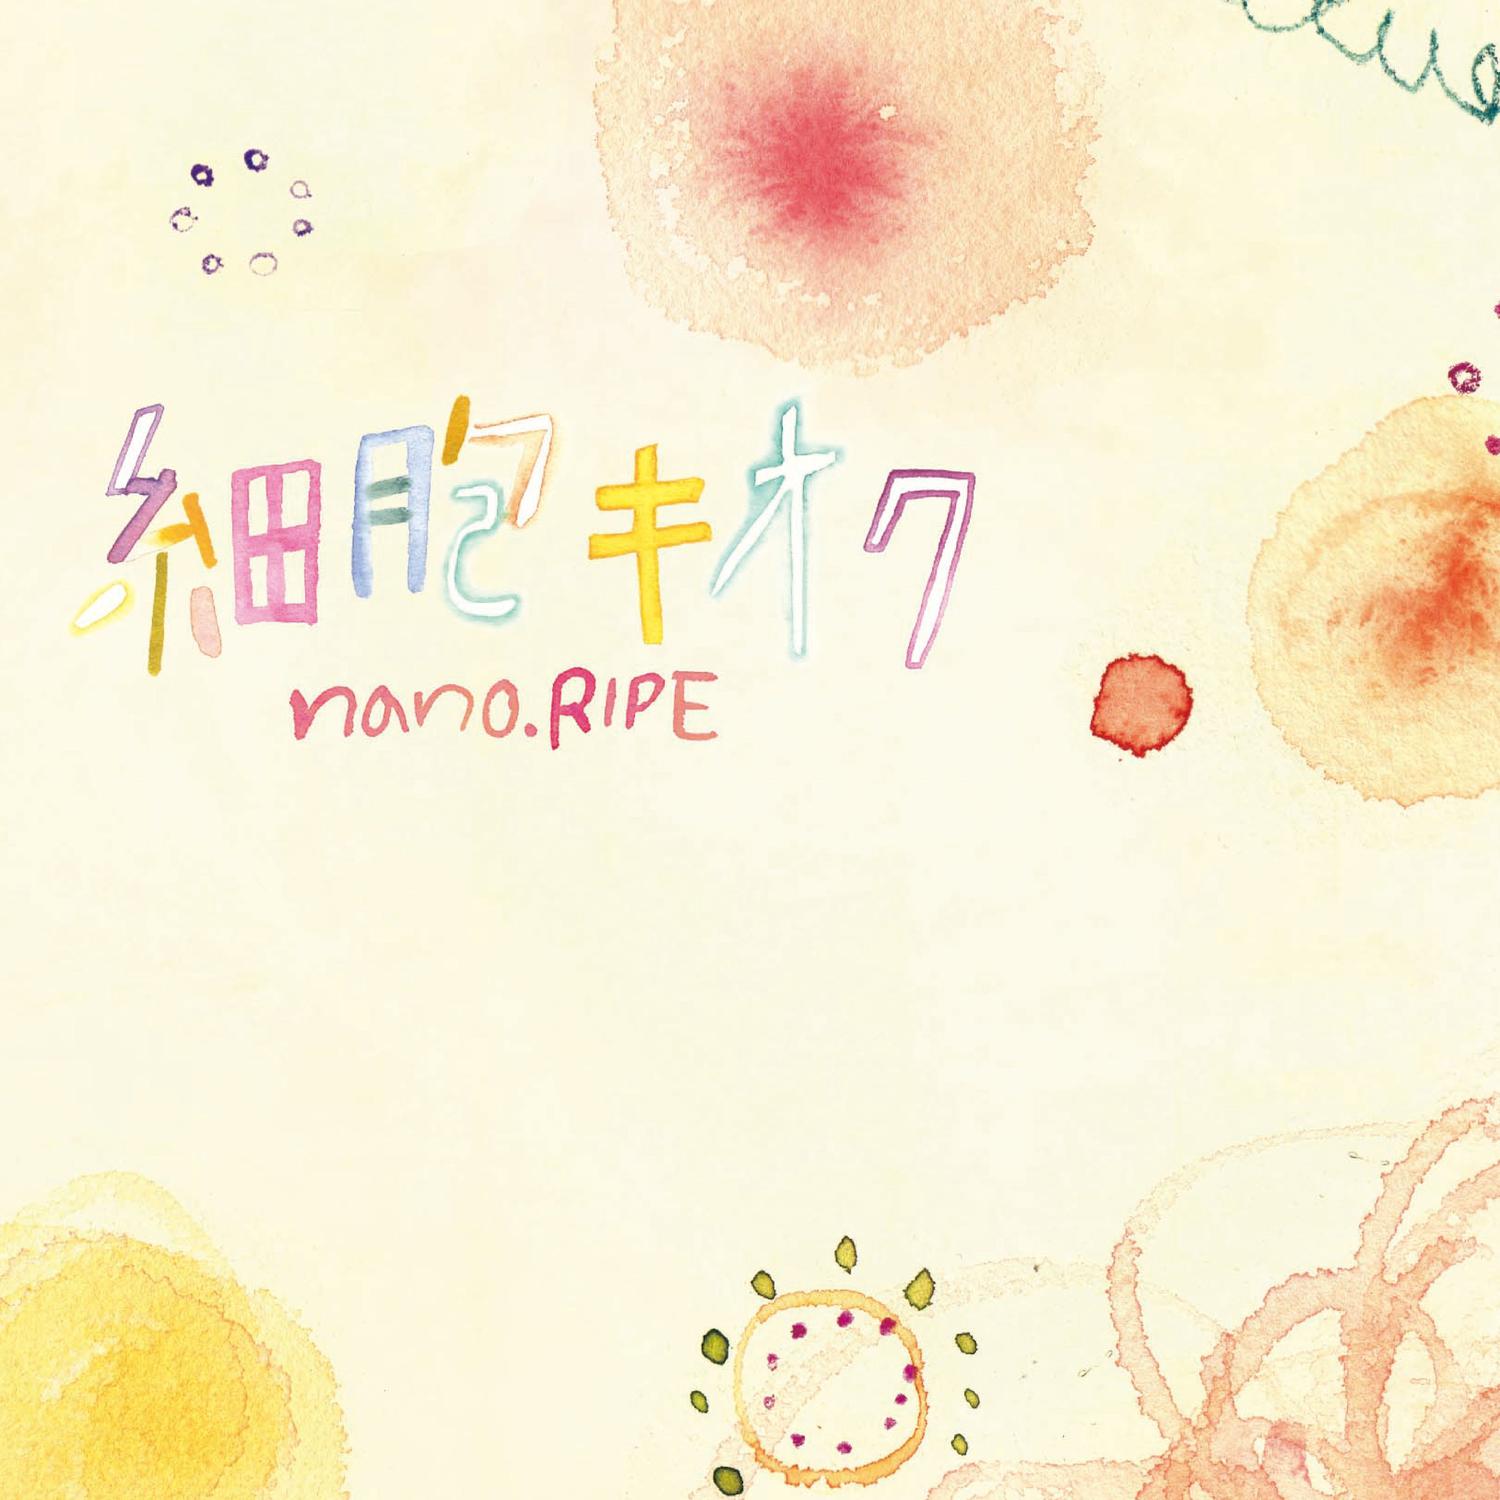 細胞キオク
nano.RIPE